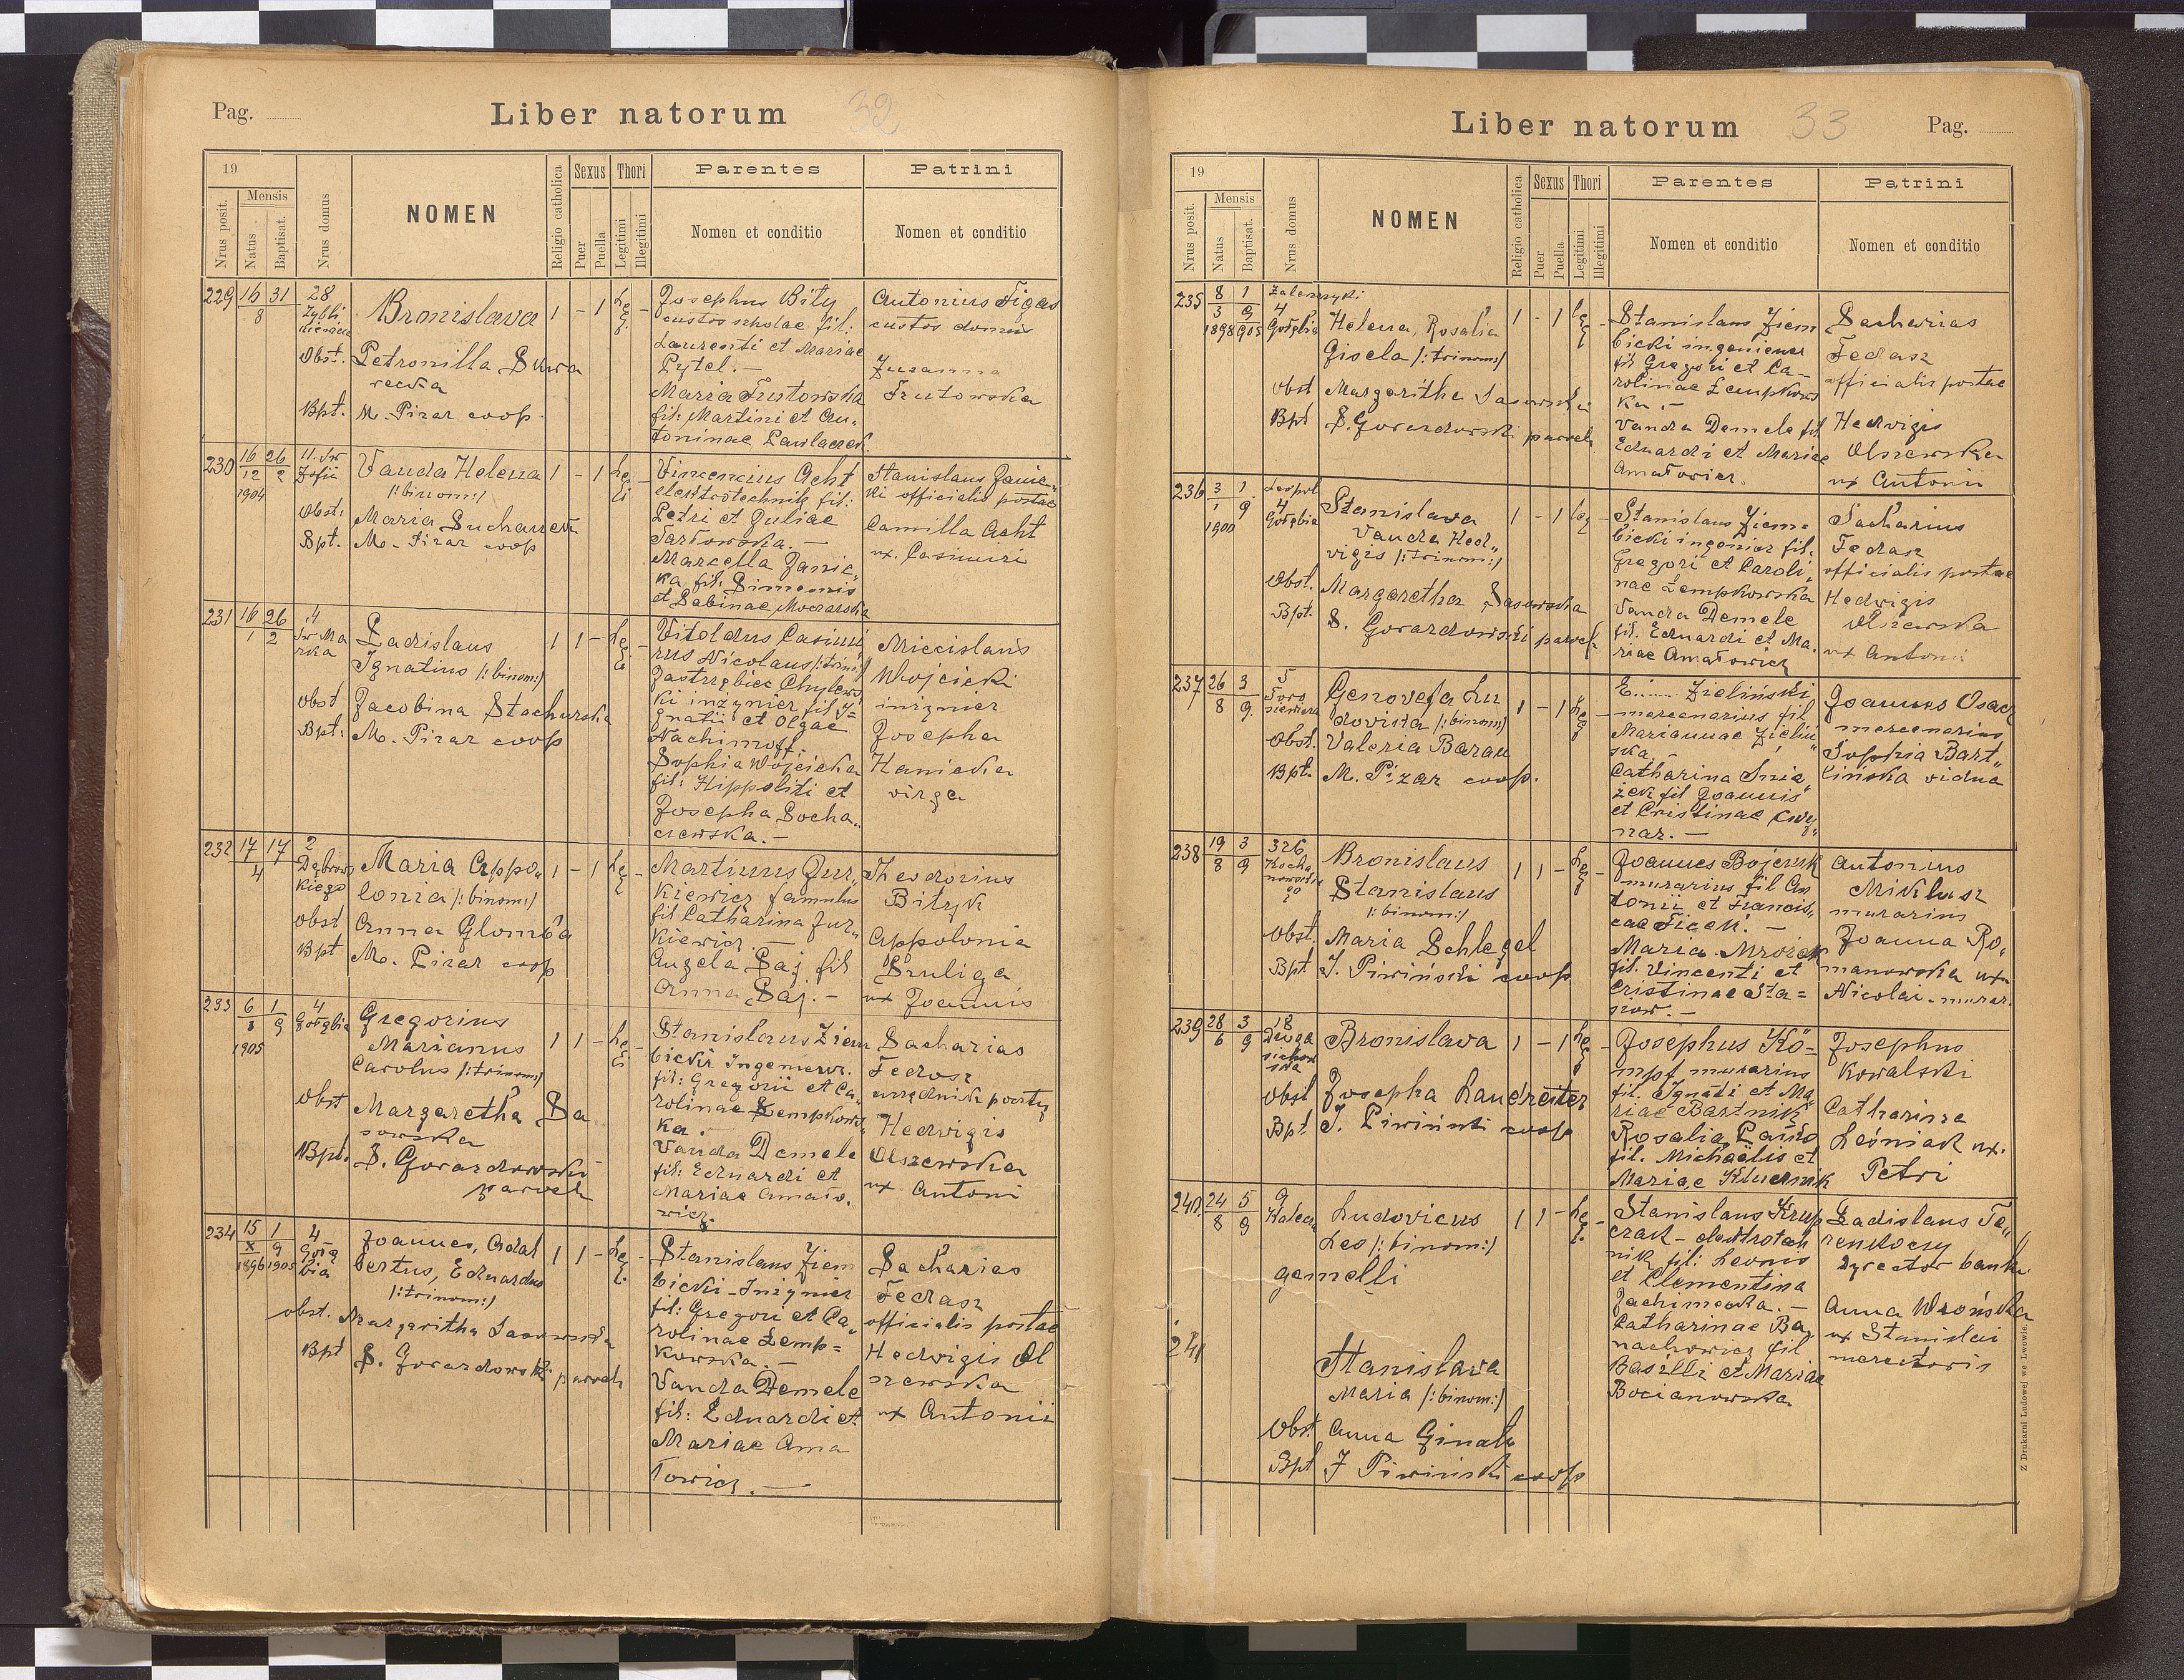 Pag.
Liber natorum
32
19
Nrus posit.
Mensis
Natus
Baptisat.
Nrus domus
NOMEN
Religio catholica
Sexus
Puer
Puella
Thori
Legitimi
Illegitimi
Parentes
Nomen et conditio
Patrini
Nomen et conditio
229
16 31
8
28
Zybli
kiewicza
Bronislava
1 - 1 Leg. -
Obst. Petronilla Skwa
recka
Bpt. M. Pizar coop.
Josephus Bily
custos scholae fil:
Laurenti et Mariae
Pytel. -
Maria Frutowska
fil: Martini et An„
toninae Pawlaczek
Antonius Figas
custos domus
Zusanna
Frutowska
230
16 26
12 2
1904
11. Św
Zofii
Vanda Helena
/:binom:/
1 - 1 Legi -
Obst: Maria Suchanek
Bpt. M. Pizar coop
Vincencius Acht
elektrotechnik fil:
Petri et Juliae
Tarkowska. -
Marcella Janic„
ka fil. Simeonis
et Sabinae Moczarska
Stanislaus Janic„
ki officialis postae
Camilla Acht
ux. Casimiri
231
16 26
1 2
4
Św Ma
rka
Ladislaus
Ignatius /:binom:/
1 1 - Leg -
Obst Jacobina Stachurska
Bpt: M. Pizar coop
Vitoldus Casimi
rus Nicolaus /:trin:/
Jastrzębiec Chylews
ki inzynier fil J=
gnatii et Olgae
Nachimoff.
Sophia Wojcicka
fil: Hippoliti et
Josepha Socha„
czewska. -
Miecislaus
Wojcicki
inzynier
Josepha
Hanicka
virgo
232
17 17
4
2
Dąbrows
kiego
Maria Appo„
lonia /:binom:/
1 - 1 Leg -
Obst Anna Glomba
Bpt M. Pizar coop
Martinus Jur„
kiewicz famulus
fil Catharina Jur„
kiewicz. -
Angela Saj fil
Anna Saj. -
Theodorius
Bitzyk
Appolonia
Smliga
ux Joannis
233
6 1
8 9
1905
4
Gołębia
Gregorius
Marianus
Carolus /:trinom:/
1 1 - Legi -
Obst Margaretha Sa
sowska
Bpt. S. Gorazdowski
paroch
Stanislaus Ziem
bicki Ingenieur.
fil: Gregorii et Ca„
rolinae Łempkows„
ka. -
Vanda Demele
fil: Eduardi et
Mariae Amało.
wicz.
Sacharias
Fedosz
urzędnik poczty
Hedwigis
Olszewska
ux Antoni
234
15 1
X 9
1896 1905
4
Gołę
bia
Joannes, Adal
bertus, Eduardus
/:trinom:/
1 1 - Leg. -
obst. Margaritha Sasowska
Bpt S. Gorazdowski paroch
Stanislaus Ziem
bicki - Inżynier
fil: Gregori et Ca„
rolinae Łemp=
kowska. -
Vanda Demele
fil: Eduardi et
Mariae Ama
łowicz. -
Sacharias
Fedasz
officialis postae
Hedwigis Ol
szewska
ux Antonii
Liber natorum
33
Pag.
19
Nrus posit.
Mensis
Natus
Baptisat.
Nrus domus
NOMEN
Religio catholica
Sexus
Puer
Puella
Thori
Legitimi
Illegitimi
Parentes
Nomen et conditio
Patrini
Nomen et conditio
235
8 1
3 9
1898 905
Zaleszczyki
4
Gołębia
Helena, Rosalia
Gisela /:trinom:/
1 - 1 leg -
Obst Margaritha Sasowska
Bpt S. Gorazdowski paroch
Stanislaus Ziem
bicki ingenieur
fil Gregori et Ca-
rolinae Łempkows
ka. -
Vanda Demele fil
Eduardi et Mariae
Amałowicz.
Sacharias
Fedasz
officialis postae
Hedvigis
Olszewska
ux Antonii
236
3 1.
1 9
1900
Leopol
4
Gołębia
Stanislava
Vanda Hed„
vigis /:trinom:/
1 - 1 leg -
Obst. Margaretha Sasowska
Bpt. S. Gorazdowski paroch
Stanislaus Ziem=
bicki ingenier fil.
Gregori et Caroli„
nae Łempkowska
Vanda Demele
fil. Eduardi et Ma„
riae Amałowicz
Sacharius
Fedasz
officialis postae
Hedvigis
Olszewska
ux Antoni
237
26 3
8 9.
5
Toro
siewicza
Genovefa Lu
dovika /:binom:/
1 - 1 Leg -
Obst. Valeria Baran
Bpt. M. Pizar coop.
Zieliński
mercenarius fil
Mariannae Zieliń
ska, -
Catharina Śnie„
żek fil Joannis
et Cristinae
nar. -
Joannes Osac
mercenarius
Sophia Bart„
lińska vidua
238
19 3
8 9
326
Kocha
nowskie
go
Bronislaus
Stanislaus
/:binom:/
1 1 - Leg -
Obst. Maria Schlegel
Bpt. J. Piwiński coop
Joannes Bojczuk
murarius fil An
tonii et Francis„
cae Ficek. -
Maria Mroczek
fil. Vincenti et
Cristinae Sta=
siow. -
Antonius
Miklasz
murarius
Joanna Ro„
manowska ux
Nicolai - murar.
239
28 3
6 9
18
Bronislava
1 - 1 Leg -
Obst Josepha Laudreiter
Bpt. J. Piwiński coop
Josephus Kö=
mpf murarius
fil. Ignati et Ma
riae Bartnik
Rosalia Pańko
fil. Michaëlis et
Mariae Klucznik
Josephus
Kowalski
Catharina
Leśniak ux.
Petri
240.
24 5
8 9
9
Kalecza
Ludovicus
Leo /:binom:/
gemelli
1 1 - Leg. -
Stanislaus Krup
czak - elektrotech
nik fil: Leonis
et Clementina
Jachimecka. -
Catharinae Ba„
nachowicz fil
Basilli et Mariae
Bocianowska
Ladislaus Te„
renkoczy
dyrector banku
Anna Wrońska
ux Stanislai
mercatoris
241
Stanislava
Maria /:binom:/
Obst. Anna Ginalt
Bpt J Piwiński coop
Z Drukarni Ludowej we Lwowie.